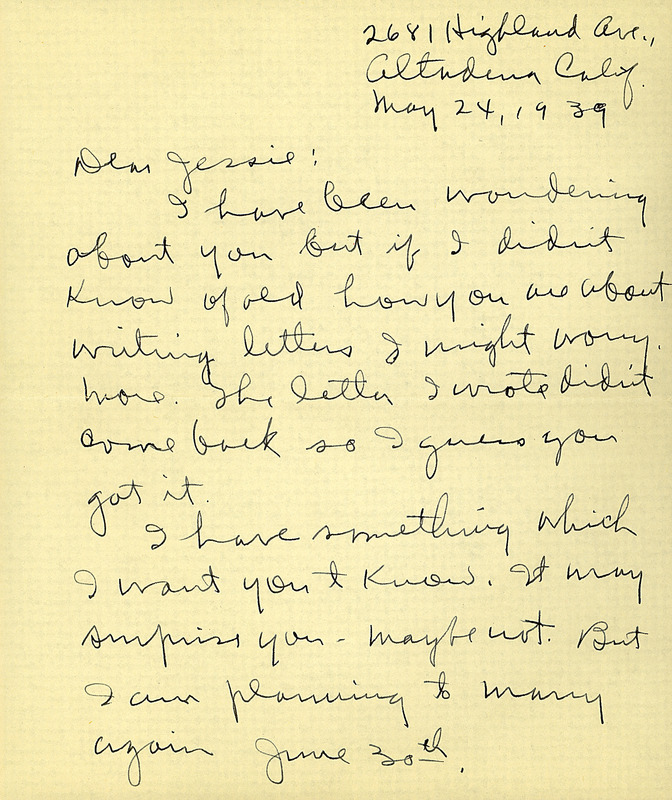 2681 Highland Ave.,
Altadena Calif.
May 24, 1939
Dear Jessie:
I have been wondering
about you but if I didn't
know of old how you are about
writing letters I might worry.
more. The letter I wrote didn't
come back so I guess you
got it.
I have something which
I want you to know. It may
surprise you - maybe not. But
I am planning to marry
again June 30th.